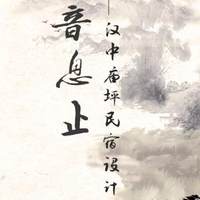 音息止
——汉中庙坪民宿设计